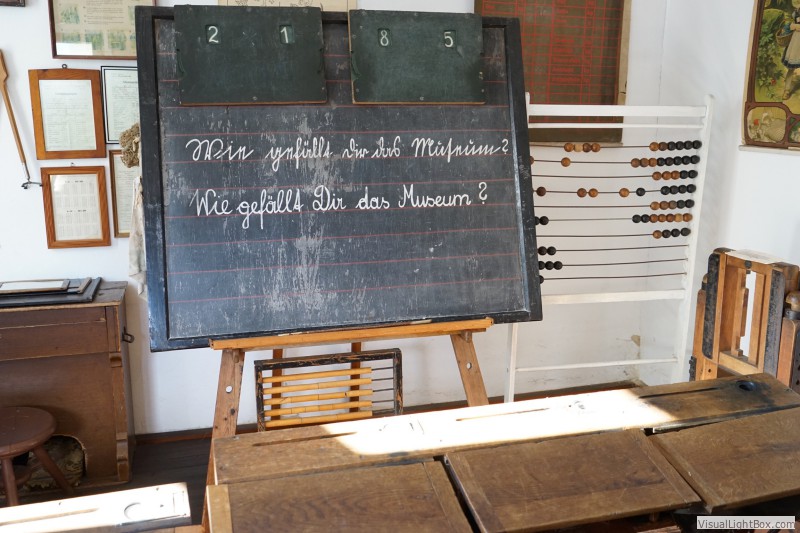 2 1 8 5
Wie gefällt dir das Museum?
Wie gefällt Dir das Museum?
VisualLightBox.com